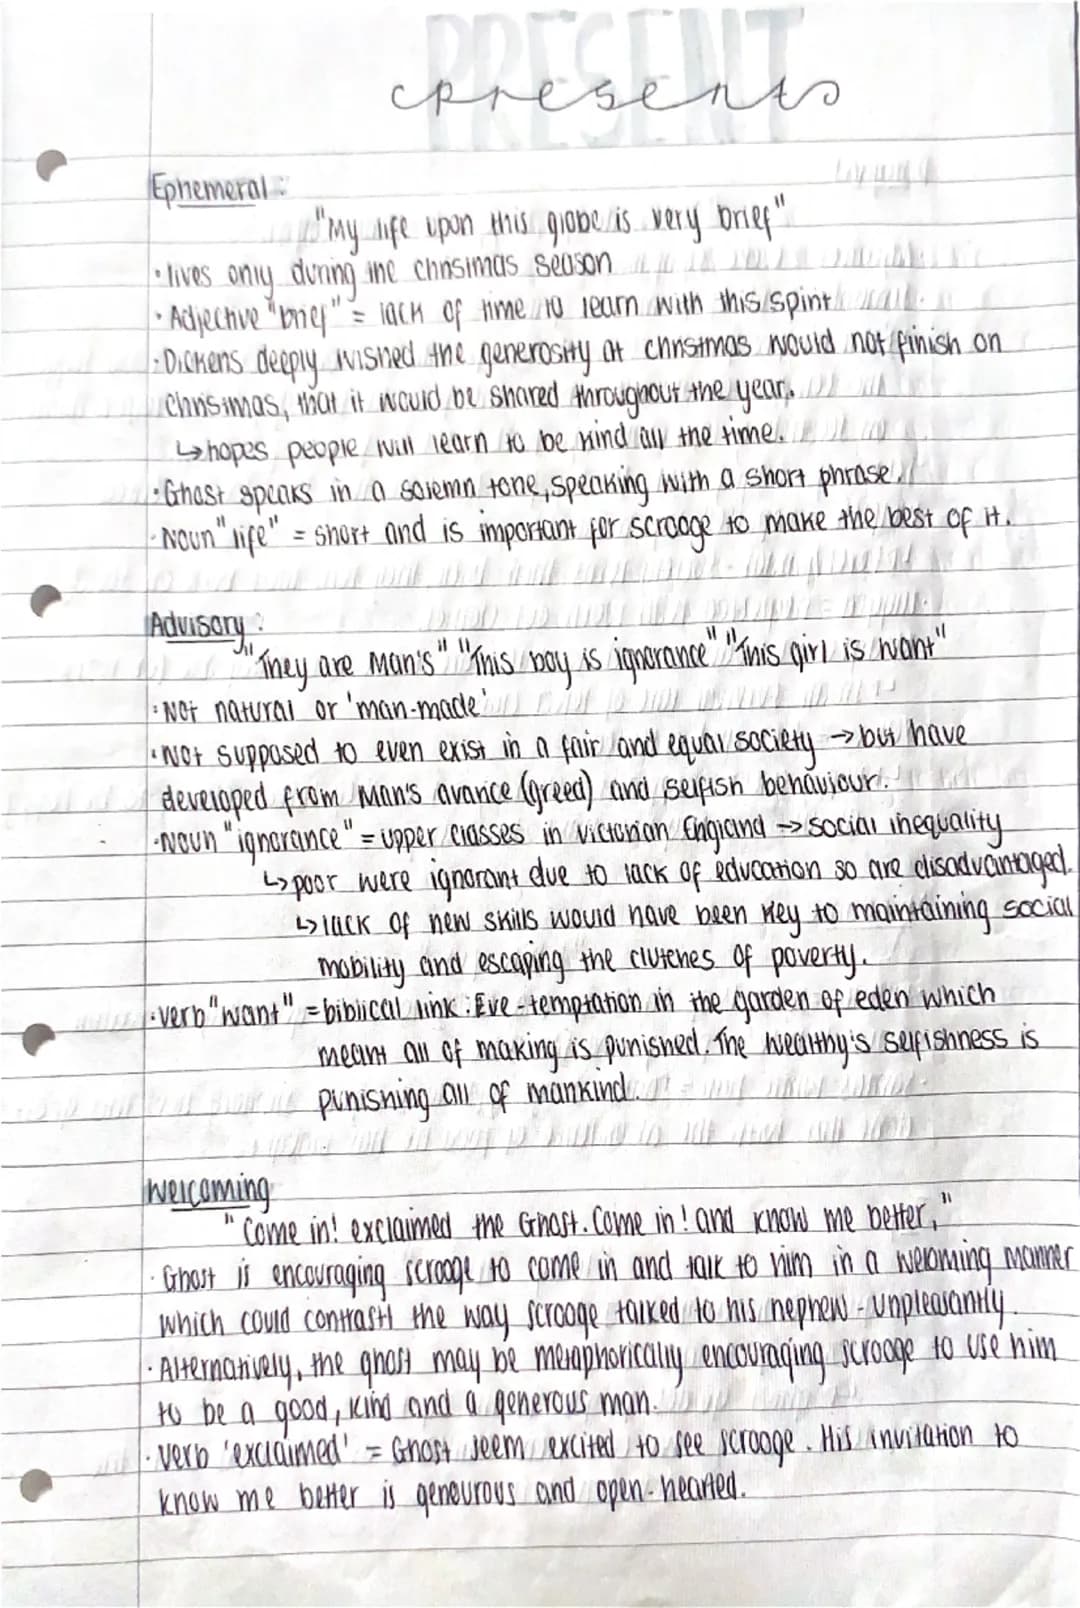 PRESENT
presents
Ephemeral:
"My life upon this globe is very brief"
• lives only during the christmas season
• Adjective "brief" = lack of time to learn with this spirit
• Dickens deeply wished the generosity at christmas would not finish on
christmas, that it would be shared throughout the year.
↳ hopes people will learn to be kind all the time.
• Ghost speaks in a solemn tone, speaking with a short phrase.
• Noun "life" = short and is important for scrooge to make the best of it.
Advisory:
"They are Man's" "This boy is ignorance" "This girl is want"
• Not natural or 'man-made'
• Not supposed to even exist in a fair and equal society → but have
developed from Man's avarice (greed) and selfish behaviour.
• Noun "ignorance" = upper classes in victorian England → social inequality
↳ poor were ignorant due to lack of education so are disadvantaged.
↳ lack of new skills would have been key to maintaining social
mobility and escaping the clutches of poverty.
• verb "want" = biblical link: Eve - temptation in the garden of eden which
meant all of making is punished. The wealthy's selfishness is
punishing all of mankind.
Welcoming
"Come in! exclaimed the Ghost. Come in! and know me better,"
• Ghost is encouraging scrooge to come in and talk to him in a weloming manner
which could contrast the way scrooge talked to his nephew - unpleasantly.
• Alternatively, the ghost may be metaphorically encouraging scrooge to use him
to be a good, kind and a generous man.
• verb 'exclaimed' = Ghost seem excited to see scrooge. His invitation to
know me better is genourous and open-hearted.